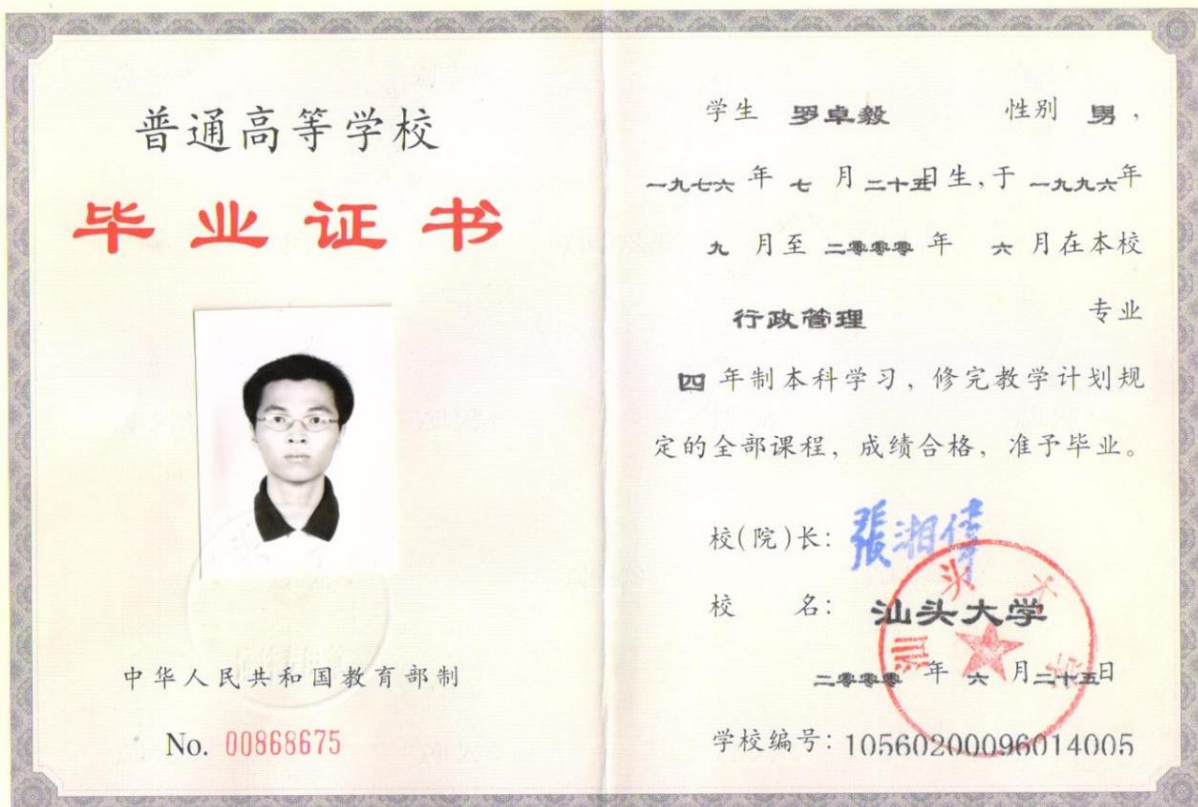 普通高等学校
毕业证书
中华人民共和国教育部制
No. 00868675
学生 罗卓毅 性别 男，
一九七六 年 七 月 二十五日生，于 一九九六年
九 月至 二零零零 年 六 月在本校
行政管理 专业
四 年制本科学习，修完教学计划规
定的全部课程，成绩合格，准予毕业。
校(院)长：張湘偉
校 名：汕头大学
汕头大学
二零零零 年 六 月二十五日
学校编号：10560200096014005